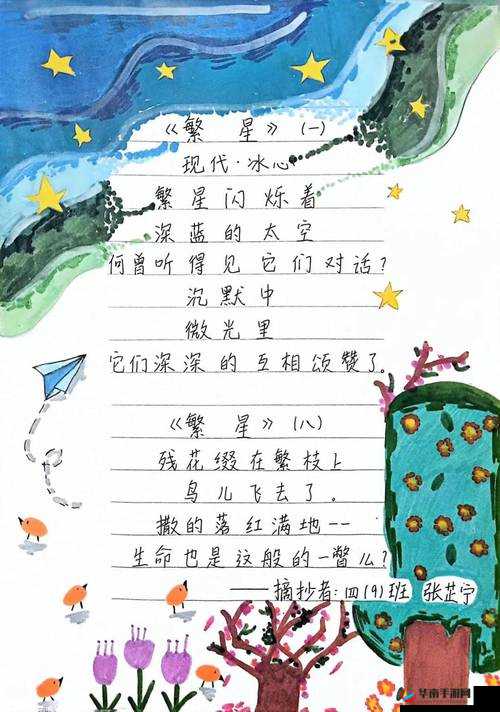 《繁 星》(一)
现代·冰心
繁星闪烁着
深蓝的太空
何曾听得见它们对话?
沉默中
微光里
它们深深的互相颂赞了。
《繁 星》(八)
残花缀在繁枝上
鸟儿飞去了。
撒的落红满地--
生命也是这般的一瞥么?
——摘抄者:四(9)班 张芷宁
华南手游网